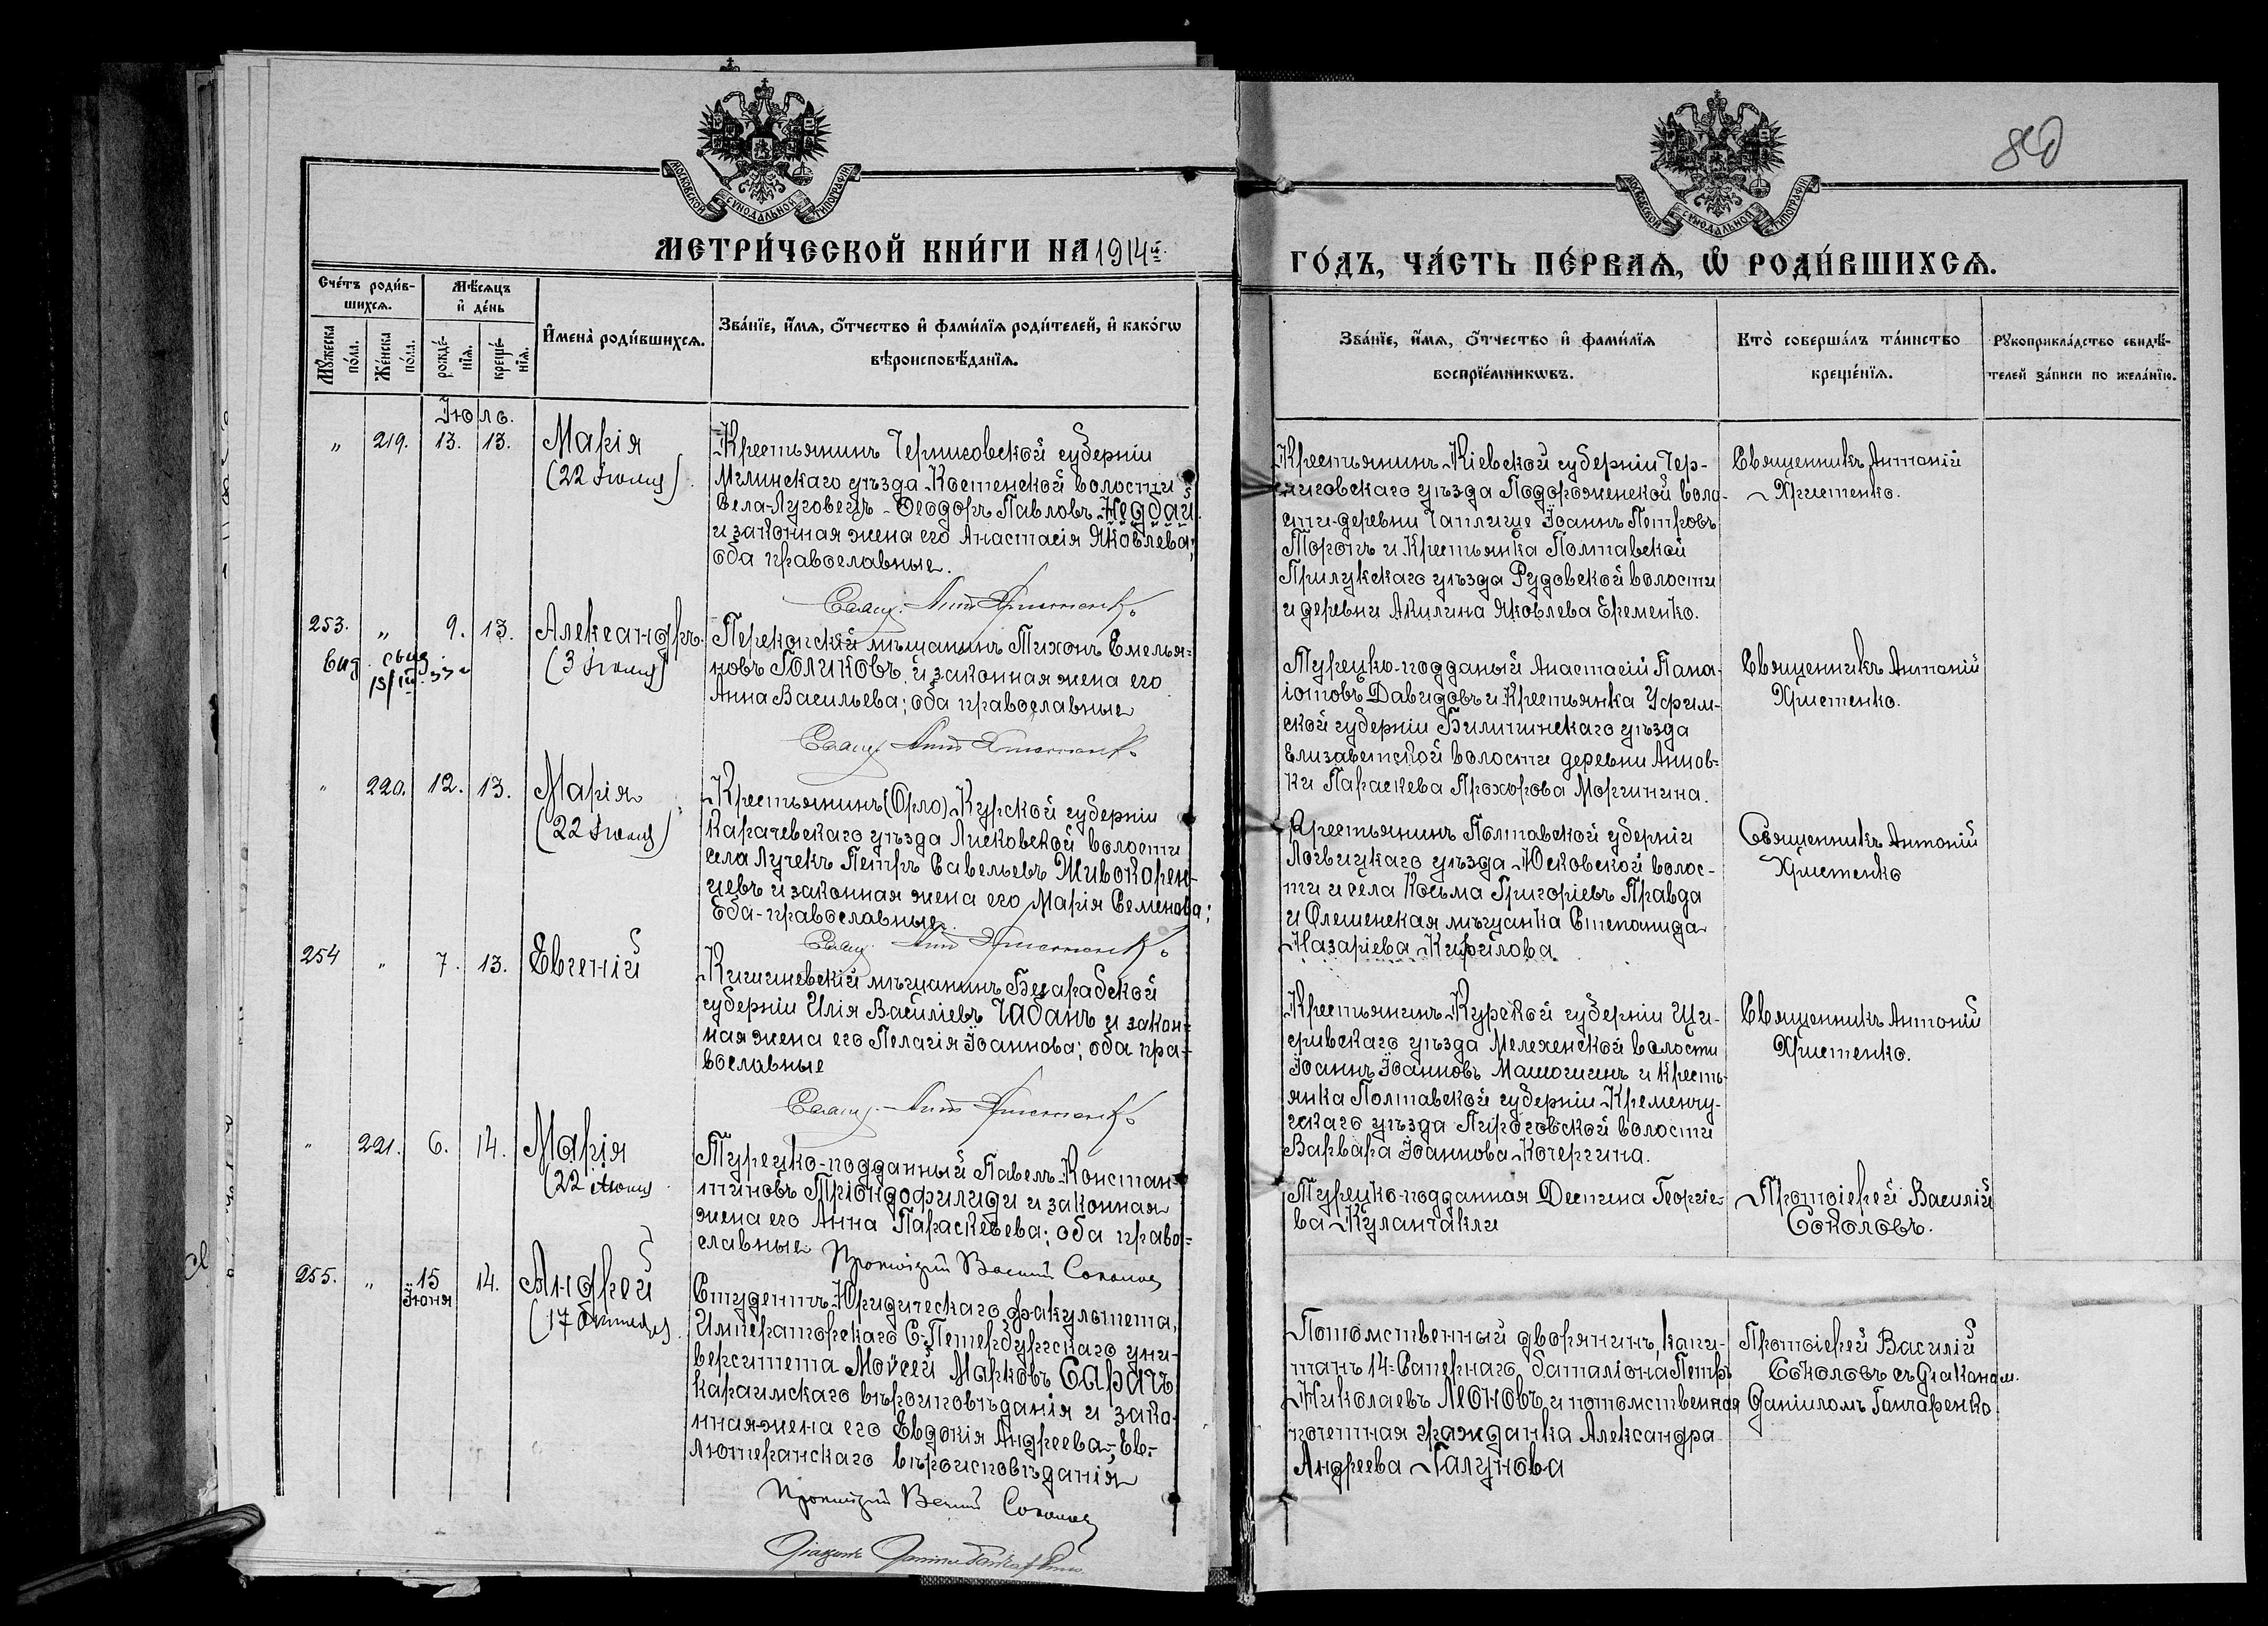 80
МОСКОВСКОЙ СѴНОДАЛЬНОЙ ТИПОГРАФІИ
МОСКОВСКОЙ СѴНОДАЛЬНОЙ ТИПОГРАФІИ
МЕТРИ́ЧЕСКОЙ КНИ́ГИ НА 1914й
ГО́ДЪ, ЧА́СТЬ ПЕ́РВАѦ, Ѡ҆ РОДИ́ВШИХСѦ.
Сче́тъ роди́в-
шихсѧ.
Мꙋ́жеска по́ла.
Же́нска по́ла.
Мѣ́сѧцъ
и҆ де́нь
рожде́-
нїѧ.
креще́-
нїѧ.
И҆мена̀ роди́вшихсѧ.
Зва́нїе, и҆́мѧ, ѻ҆́тчество и҆ фами́лїѧ роди́телей, и҆ како́гѡ
вѣроисповѣ́данїѧ.
Зва́нїе, и҆́мѧ, ѻ҆́тчество и҆ фами́лїѧ
воспрїе́мникѡвъ.
Кто̀ соверша́лъ та́инство
креще́нїѧ.
Рꙋкоприкла́дство свидѣ́-
телей за́писи по жела́нїю.
Іюль.
„ 219. 13. 13. Марія
(22 Іюля).
Крестьянинъ Черниговской губерніи
Мглинскаго уѣзда Костенской волости
Села-Луговецъ - Ѳеодоръ Павловъ Недбай
и законная жена его Анастасія Яковлева;
оба православные.
Свящ. Ант Христенко
Крестьянинъ Кіевской губерніи Чер-
ниговскаго уѣзда Подороженской воло-
сти-деревни Чаплище Іоаннъ Петровъ
Торопъ и Крестьянка Полтавской
Прилукскаго уѣзда Рудовской волости
и деревни Акилина Яковлева Еременко.
Священникъ Антоній
Христенко.
253. „ 9. 13. Александръ.
(3 Іюля)
Выд. свид.
15/III 33 г
Перекопскій мѣщанинъ Тихонъ Емелья-
новъ Голиковъ и законная жена его
Анна Васильева; оба православные
Свящ. Ант Христенко
Турецко-подданый Анастасій Пана-
іотовъ Давидовъ и Крестьянка Уфим-
ской губерніи Биличинскаго уѣзда
Елизаветской волости деревни Аннов-
ки Параскева Прохорова Моргинина.
Священникъ Антоній
Христенко.
„ 220. 12. 13. Марія
(22 Іюля)
Крестьянинъ (Орло) Курской губерніи
Карачевскаго уѣзда Лисковской волости
села Лучекъ Петръ Савельевъ Живокорен-
цевъ и законная жена его Марія Семенова;
Оба-православные.
Свящ. Ант Христенко
Крестьянинъ Полтавской уберніи
Лохвицкаго уѣзда Юсковской волос-
ти и села Косьма Григоріевъ Правда
и Олешенская мѣщанка Степанида
Назаріева Кирилова
Священникъ Антоній
Христенко
254 „ 7. 13. Евгеній
Кишиневскій мѣщанинъ Бесарабской
губерніи Илія Василіевъ Чабанъ и закон-
ная жена его Пелагія Іоаннова; оба пра-
вославные
Свящ. Ант Христенко
Крестьянинъ Курской губерніи Щи-
гривскаго уѣзда Мелехенской волости
Іоаннъ Іоанновъ Машошинъ и Кресть-
янка Полтавской губерніи Кременчу-
гскаго уѣзда Пироговской волости
Варвара Іоаннова Кочергина.
Священникъ Антоній
Христенко.
„ 221. 6. 14. Марія
(22 Іюля)
Турецко-подданный Павелъ Констан-
тиновъ Тріондофилиди и законная
жена его Анна Параскевева; оба право-
славные
Протоіерей Василій Соколовъ
Турецко-подданная Деспина Георгіе-
ва Куланчакли
Протоіерей Василій
Соколовъ.
255. „ 15
Іюня
14. Андрей
(17 Октября).
Студентъ Юридическаго факультета,
Императорскаго С-Петербургскаго уни-
верситета Моѵсей Марковъ Сарачъ
караимскаго вѣроиповѣданія и зако-
нная жена его Евдокія Андреева, Ев.-
Лютеранскаго вѣроисповѣданія
Протоіерей Василій Соколовъ
Діаконъ Даніилъ Гончаренко
Потомственный дворянинъ, капи-
танъ 14-Сапернаго баталіона Петръ
Николаевъ Леоновъ и потомственная
почетная гражданка Александра
Андреева Галунова
Протоіерей Василій
Соколовъ съ Діакономъ
Даніиломъ Гончаренко